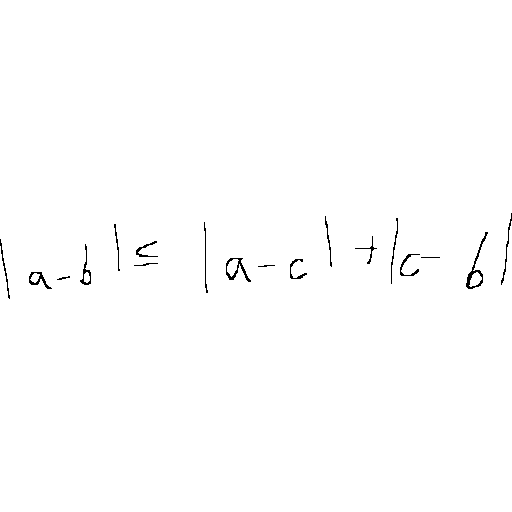 |a-b| ≤ |a-c| + |c-b|